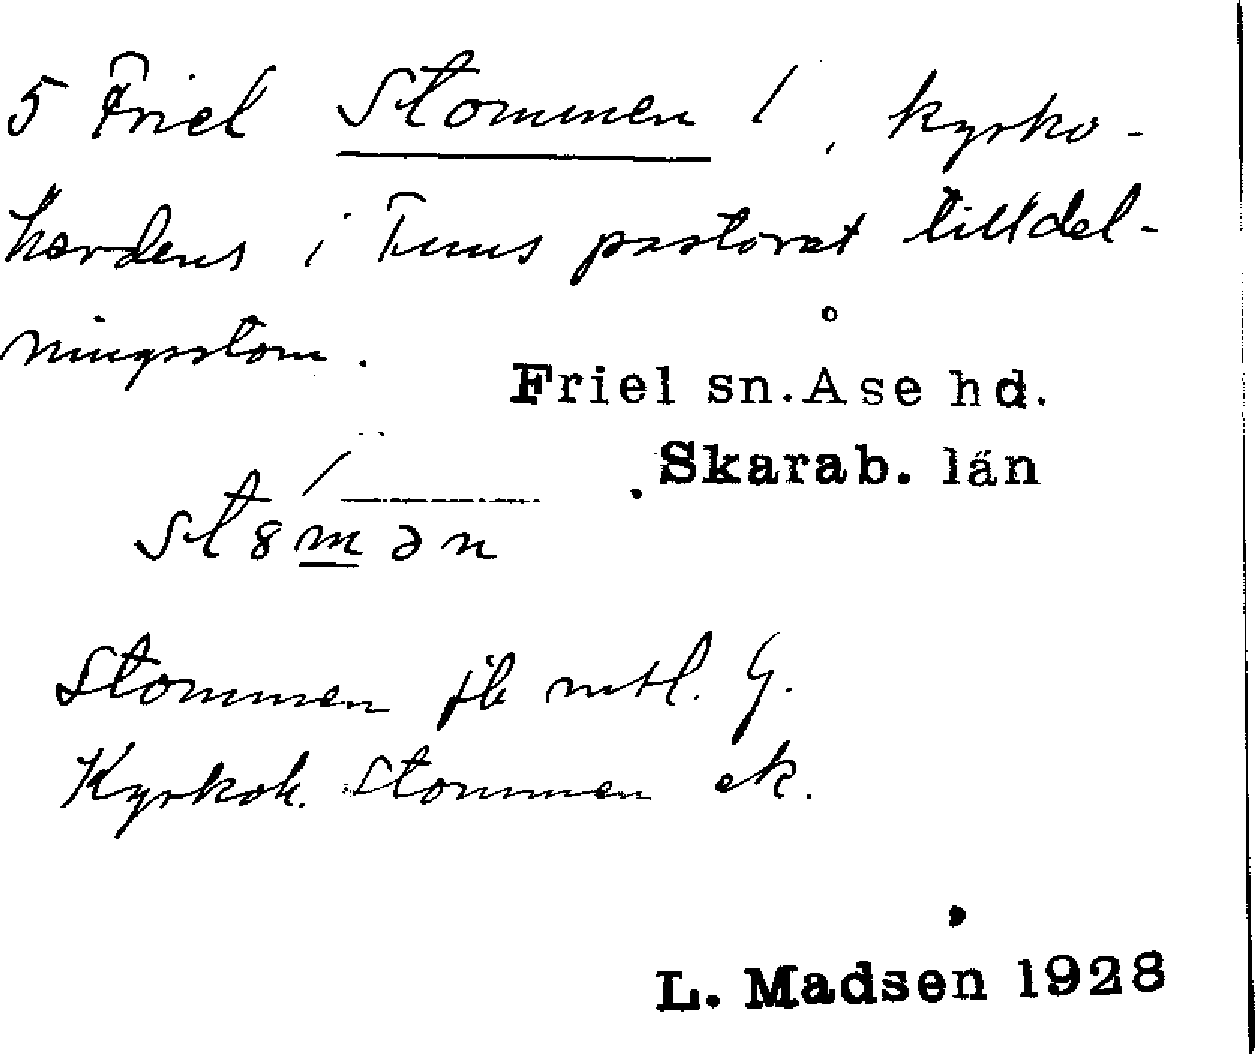 5 Friel Stommen 1, kyrko-
herdens i Tuns pastorat tilldel-
ningsstom.
Friel sn. Åse hd.
Skarab. län
Stommen jb mtl. G.
Kyrkoh. Stommen ek.
L. Madsen 1928